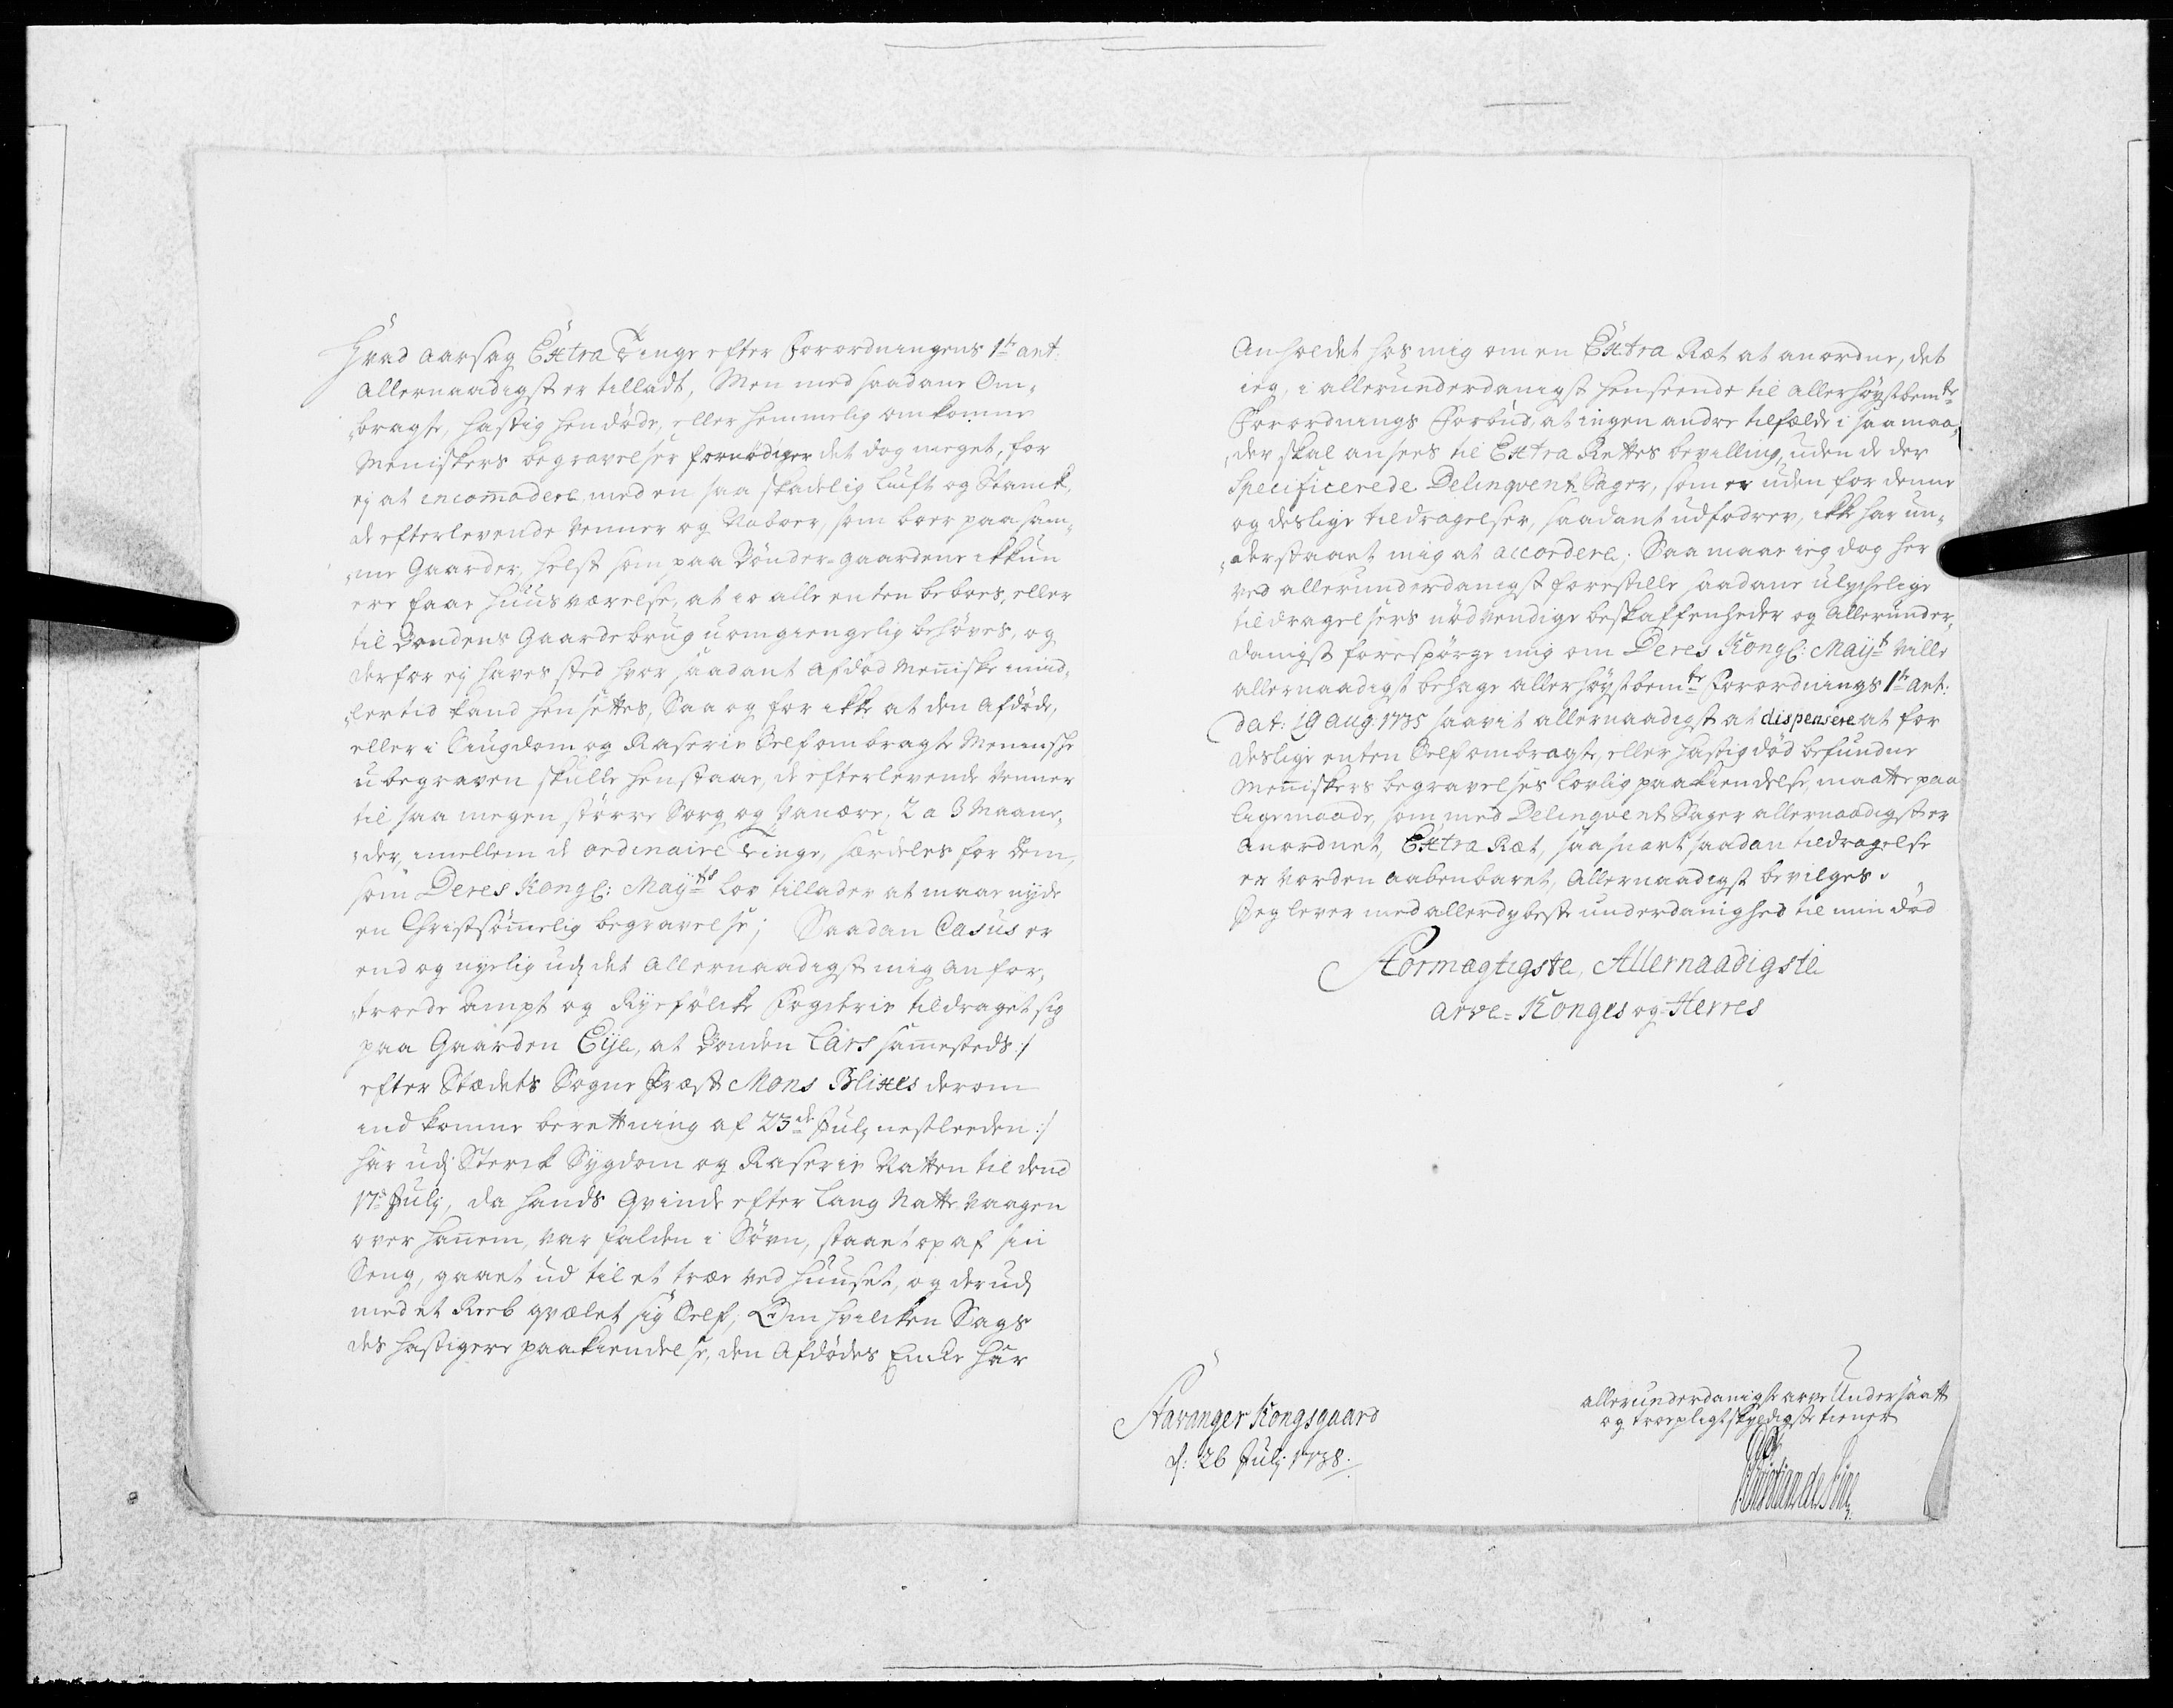 Hvad aarsag Extra Tinge efter Forordningens 1te art:
Allernaadigst er tilladt, Men med saadane Om-
-bragte, hastig hendøde, eller hemmelig omkomne
Meniskers begravelser fornødiger det dog meget, for
ej at incom̅odere med en saa skadelig Luft og Stanck,
de efterlevende Venner og Naboer, som boer paa sam-
-me Gaarder, helst som paa Bønder-gaardene ikkun
ere faae Huus værelse, at io alle enten beboes, eller
til Bondens Gaardebrug uomgiengelig behøves, og
derfor ej haves sted hvor saadant Afdød Men̅iske imid-
-lertid kand hensettes, Saa og for ikke at den Afdøde,
eller i Siugdom og Raserie Self ombragte Menniske
ubegraven skulle henstaae, de efterlevende Venner
til saa megen større Sorg og Vanære, 2 a 3 Maane-
-der, imellem de ordinaire Tinge, særdeles for dem,
som Deres Kongl: Mayts Lov tillader at maae nyde
en Christsøm̅elig begravelse; Saadan Casus er
end og nyelig udj det Allernaadigst mig anfor-
-troede Ampt og Ryefølcke Fogderie tildraget sig
paa Gaarden Eije, at Bonden Lars sam̅esteds :/
efter Stædets Sogne Præst Mons Blixes derom
indkomne berettning af 23de Julj nestleeden :/
har udj Sterck Sygdom og Raserie Natten til dend
17de Julj, da hands Qvinde efter Lang Natte Vaagen
over han̅em, var falden i Søvn, staaet op af sin
Seng, gaaet ud til et træe ved huuset, og derudj
med et Reeb qvælet sig Self; Om hvilcken Sags
des hastigere paakiendelse, den Afdødes Encke har
Anholdet hos mig om en Extra Ræt at anordne, det
ieg, i allerunderdanigst henseende til allerhøystbemte
Forordnings Forbud, at ingen andre tilfælde i saa maa-
-der skal ansees til Extra Rettes bevilling, uden de der
Specificerede Delinqvent Sager, som er uden for denne
og deslige tildragelser, saadant udfodrer, ikke har un-
-derstaaet mig at accordere; Saa maae ieg dog her
ved allerunderdanigst forestille saadane ulykkelige
tildragelsers nødvendige beskaffenheder og Allerunder-
danigst forespørge mig om Deres Kongl: Mayt ville
allernaadigst behage allerhøystbemte Forordnings 1te art:
dat: 19 aug: 1735 saavit allernaadigst at dispensere at for
deslige enten Selfombragte, eller hastig død befundne
Men̅iskers begravelses Lovlig paakiendelse, maatte paa
ligemaade, som med Delinqvent Sager allernaadigst er
Anordnet, Extra Ræt, saasnart saadan tildragelse
er vorden aabenbaret, Allernaadigst bevilges.
Jeg lever med allerdybeste underdanighed til min død
Stormægtigste, Allernaadigste
Arve-Konges og Herres
Stavanger Kongsgaard
d: 26 Julj 1738.
allerunderdanigste arve Undersaatt
og troepligtskyldigste tiener
Christian de Fine